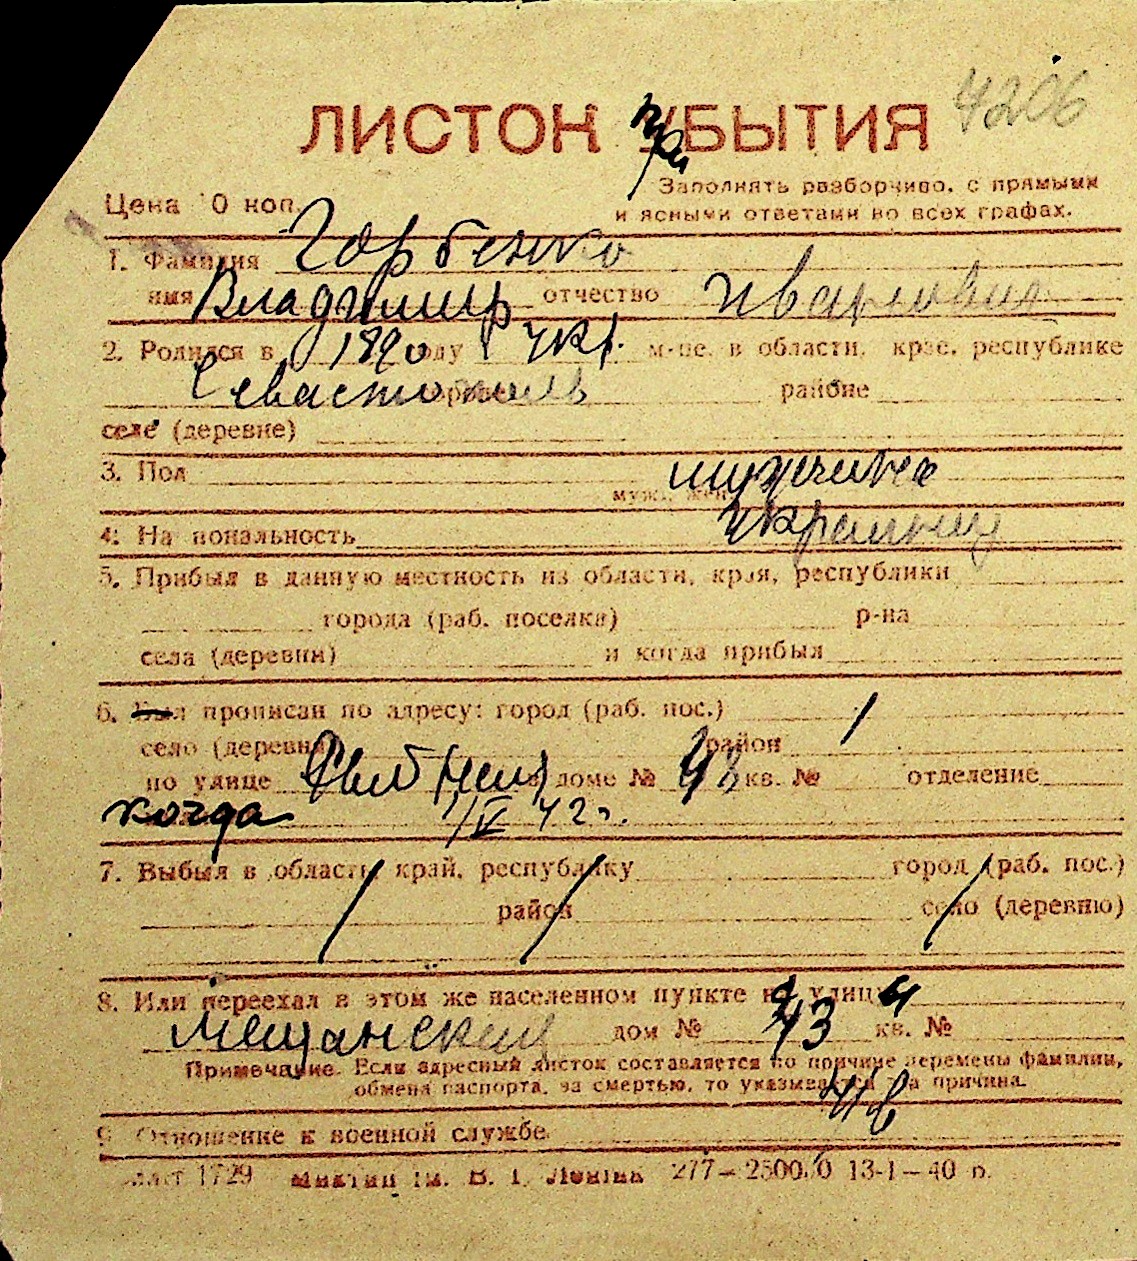 4206
ЛИСТОК при УБЫТИЯ
Цена 10 коп.
Заполнять разборчиво, с прямыми
и ясными ответами во всех графах.
1. Фамилия Горбенко
имя Владимир отчество Иванович
2. Родился в 1890 году укр. м-це, в области, крае, республике
Севастополь городе районе
селе (деревне)
3. Пол мужчина
муж., жен.
4. Национальность украинец
5. Прибыл в данную местность из области, края, республики
города (раб. поселка) р-на
села (деревни) и когда прибыл
6. Был прописан по адресу: город (раб. пос.)
село (деревня) район
по улице доме № кв. № отделение
когда 1/IV 42 г.
7. Выбыл в область, край, республику город (раб. пос.)
район село (деревню)
8. Или переехал в этом же населенном пункте на улицу
Мещанский дом № 43 кв. № 4
Примечание. Если адресный листок составляется по причине перемены фамилии,
обмена паспорта, за смертью, то указывается эта причина.
н/в
9. Отношение к военной службе
1729 им. В. І. Леніна 277—2500.0 13-I—40 р.